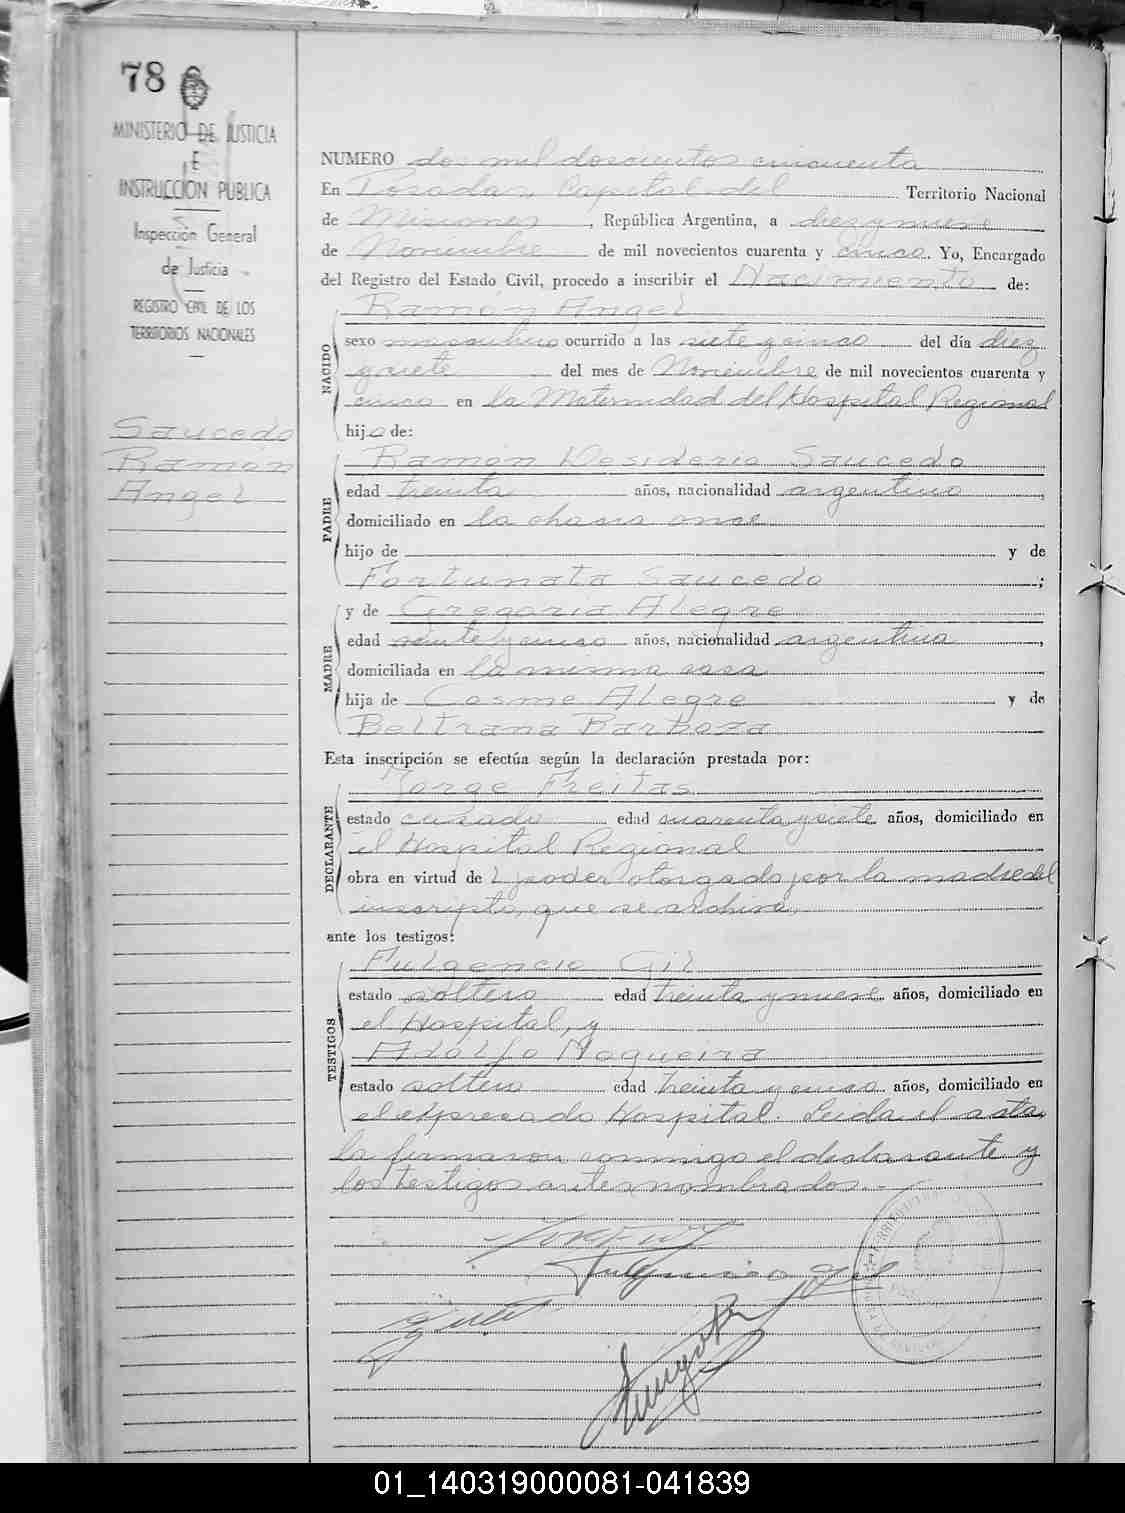 78
MINISTERIO DE JUSTICIA
E
INSTRUCCION PUBLICA
Inspección General
de Justicia
REGISTRO CIVIL DE LOS
TERRITORIOS NACIONALES
Saucedo
Ramón
Angel
NUMERO dos mil doscientos cincuenta
En Posadas, Capital del Territorio Nacional
de Misiones, República Argentina, a diez y nueve
de Noviembre de mil novecientos cuarenta y cinco. Yo, Encargado
del Registro del Estado Civil, procedo a inscribir el Nacimiento de:
Ramón Angel
NACIDO
sexo masculino ocurrido a las siete y cinco del día diez
y siete del mes de Noviembre de mil novecientos cuarenta y
cinco en la Maternidad del Hospital Regional
hijo de:
PADRE
Ramón Desiderio Saucedo
edad treinta años, nacionalidad argentino
domiciliado en la chacra once
hijo de y de
Fortunata Saucedo;
MADRE
y de Gregoria Alegre
edad veinte y cinco años, nacionalidad argentina,
domiciliada en la misma casa
hija de Cosme Alegre y de
Beltrana Barboza
Esta inscripción se efectúa según la declaración prestada por:
DECLARANTE
Jorge Freitas
estado casado edad cuarenta y siete años, domiciliado en
el Hospital Regional
obra en virtud de l poder otorgado por la madre del
inscripto, que se archiva,
ante los testigos:
TESTIGOS
Fulgencio Gil
estado soltero edad treinta y nueve años, domiciliado en
el Hospital, y
Adolfo Nogueira
estado soltero edad treinta y cinco años, domiciliado en
el expresado Hospital. Leida el acta,
la firmaron conmigo el declarante y
los testigos antes nombrados.-
Fulgencio Gil
01_140319000081-041839